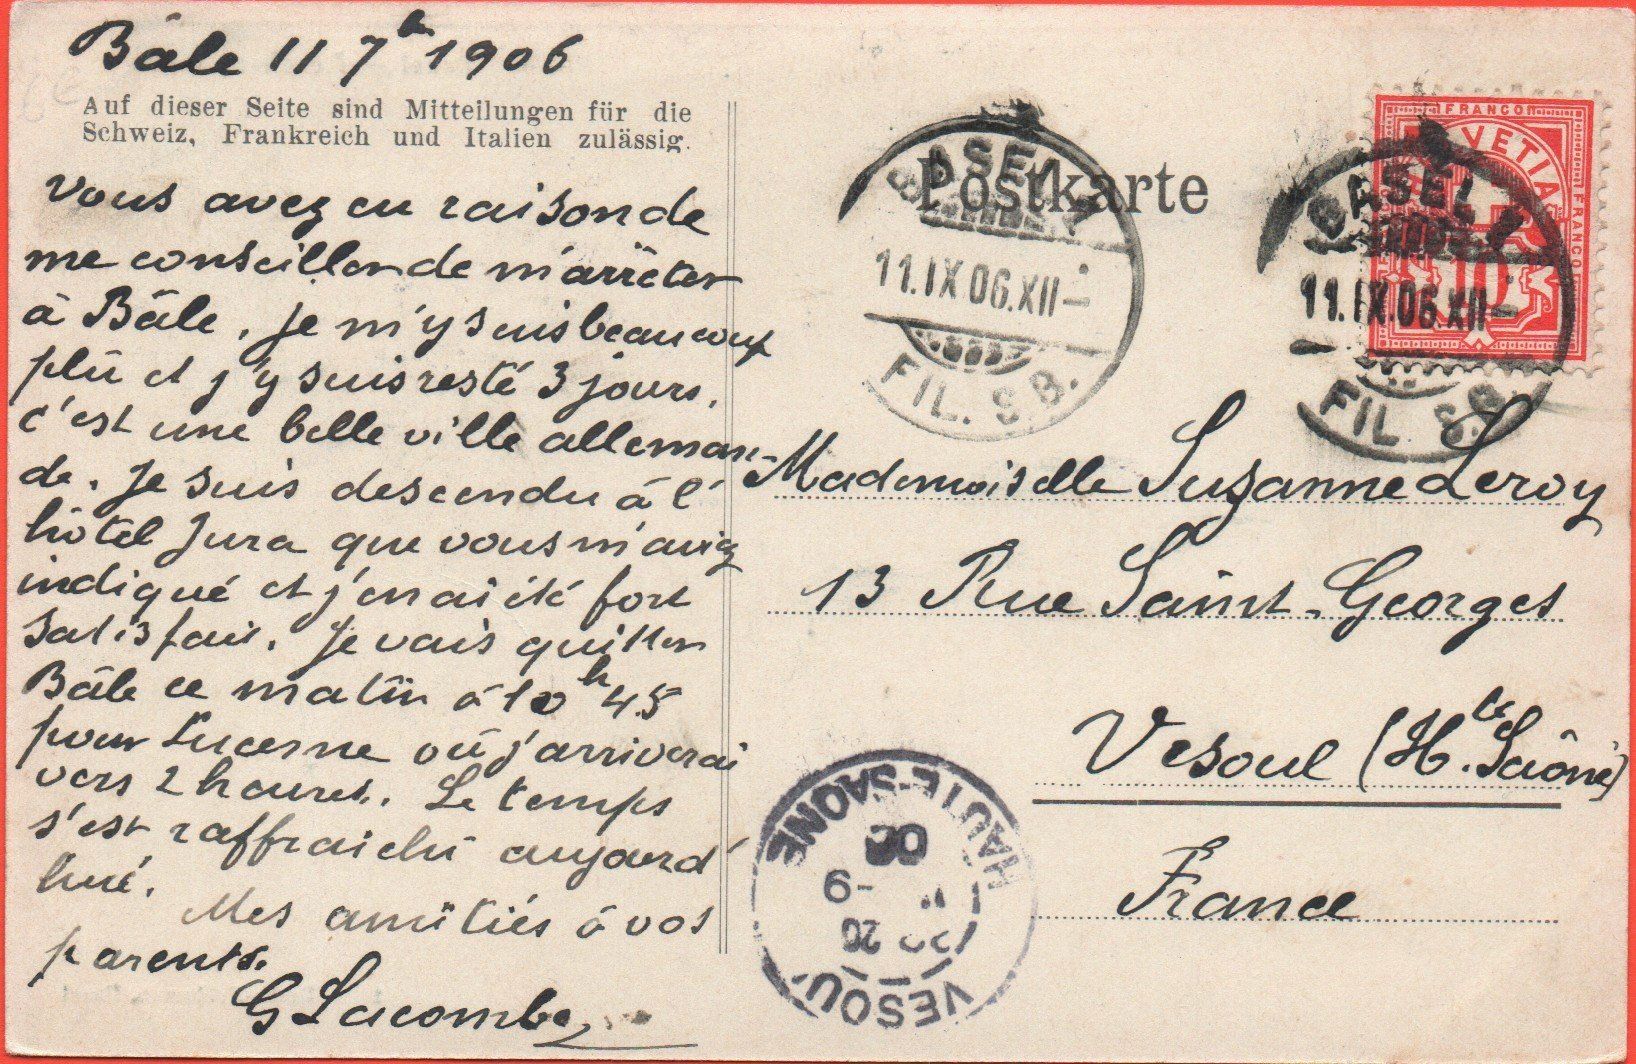 Bâle 11 7b 1906
Auf dieser Seite sind Mitteilungen für die
Schweiz, Frankreich und Italien zulässig.
Vous avez eu raison de
me conseiller de m'arrêter
à Bâle, je m'y suis beaucoup
plû et j'y suis resté 3 jours,
c'est une belle ville alleman-
de. Je suis descendu à l'
hôtel Jura que vous m'aviez
indiqué et j'en ai été fort
satisfait. Je vais quitter
Bâle ce matin à 10h 45
pour Lucerne où j'arriverai
vers 2 heures. Le temps
s'est raffraichi aujourd'
hui.
Mes amitiés à vos
parents.
G Lacombe
Postkarte
BASEL 1
11.IX.06.XII-
FIL. S.B.
FRANCO
HELVETIA
FRANCO
10
BASEL 1
11.IX.06.XII-
FIL. S.B.
Mademoiselle Suzanne Leroy
13 Rue Saint-Georges
Vesoul (Hte Saône)
France
VESOUL
20
-9
06
HAUTE-SAONE